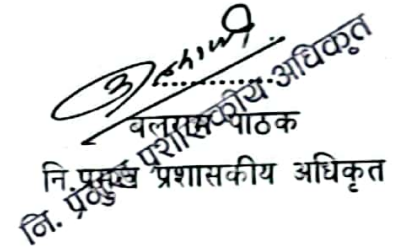 बलराम पाठक
नि.प्रमुख प्रशासकीय अधिकृत
नि. प्रमुख प्रशासकीय अधिकृत